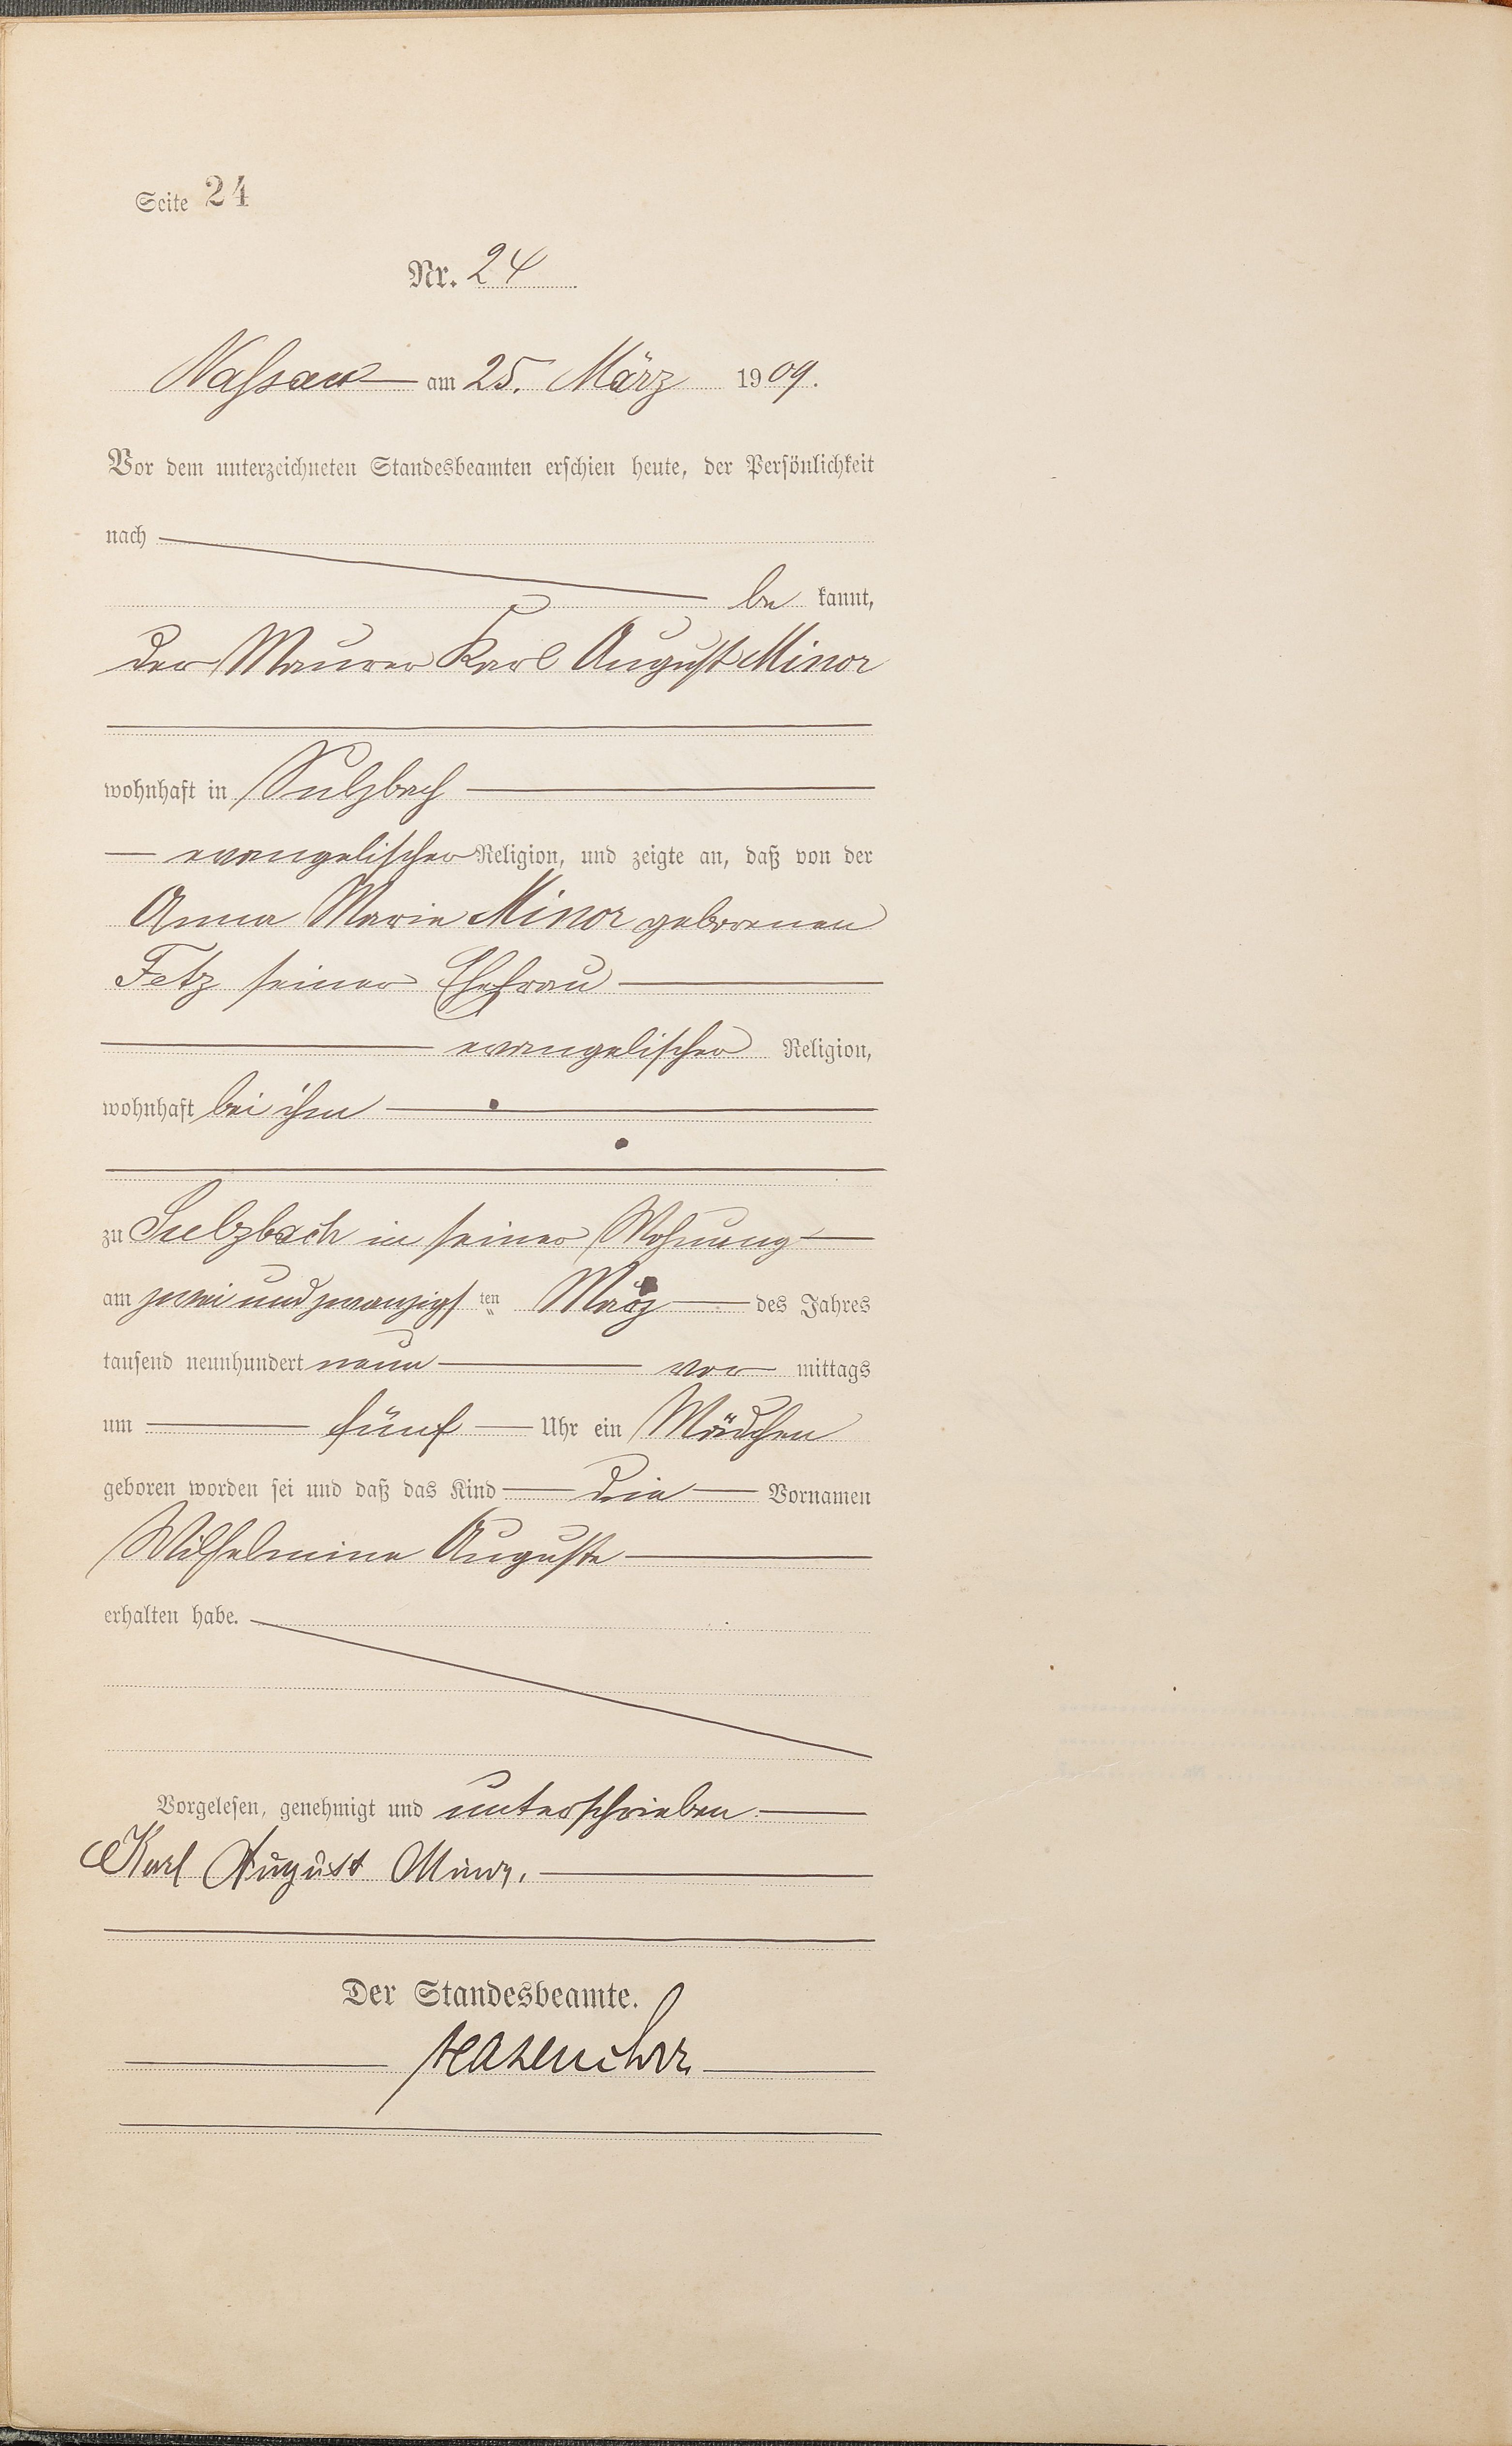 Seite 24
Nr. 24
Nassau am 25. März 1909.
Vor dem unterzeichneten Standesbeamten erschien heute, der Persönlichkeit
nach
be kannt,
der Maurer Karl August Minor
wohnhaft in Sulzbach
evangelischer Religion, und zeigte an, daß von der
Anna Marie Minor geborenen
Fetz seiner Ehefrau
evangelischer Religion,
wohnhaft bei ihm
zu Sulzbach in seiner Wohnung
am zwei und zwanzigsten März des Jahres
tausend neunhundert neun vor mittags
um fünf Uhr ein Mädchen
geboren worden sei und daß das Kind die Vornamen
Wilhelmine Auguste
erhalten habe.
Vorgelesen, genehmigt und unterschrieben.
Karl August Minor.
Der Standesbeamte.